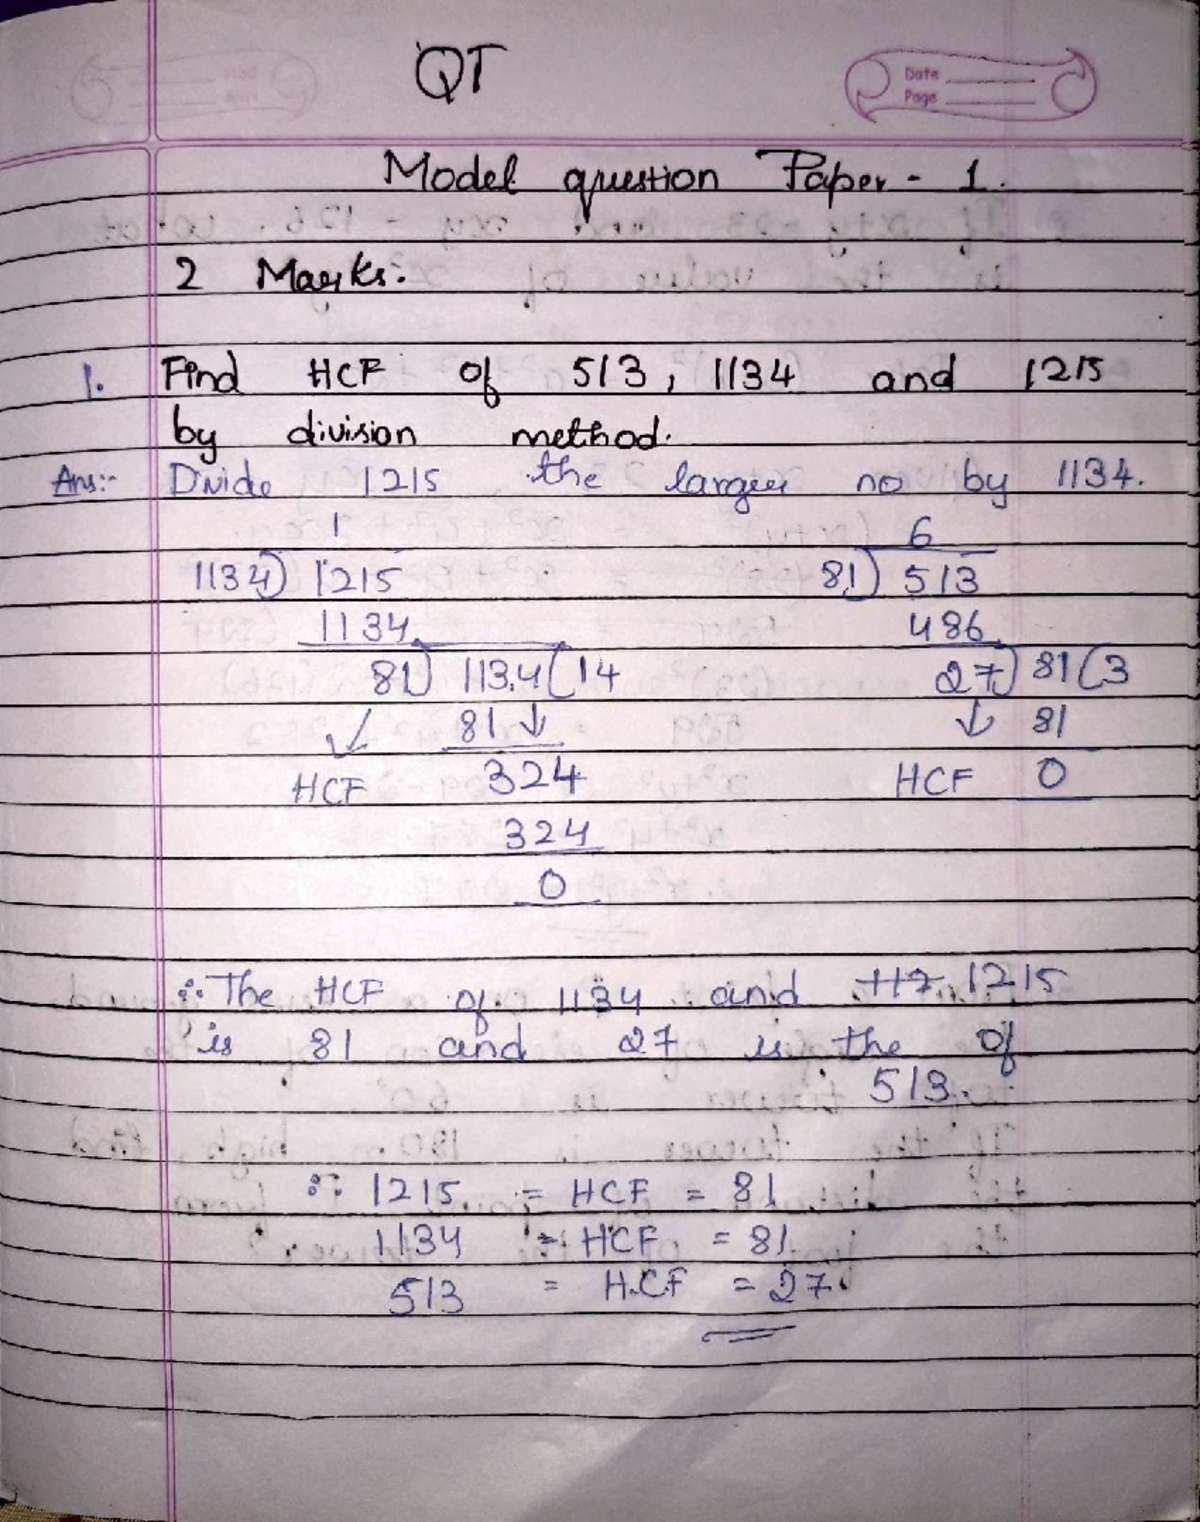 QT
Date
Page
Model question Paper - 1.
2 Marks:
1. Find HCF of 513, 1134 and 1215
by division method.
Ans:- Divide 1215 the larger no by 1134.
1 6
1134) 1215 81) 513
1134 486
81) 1134 (14 27) 81 (3
81 ↓ ↓ 81
HCF 324 HCF 0
324
0
∴ The HCF of 1134 and 117 1215
is 81 and 27 is the of
513.
∴ 1215 = HCF = 81
1134 = HCF = 81
513 = H.C.F = 27.